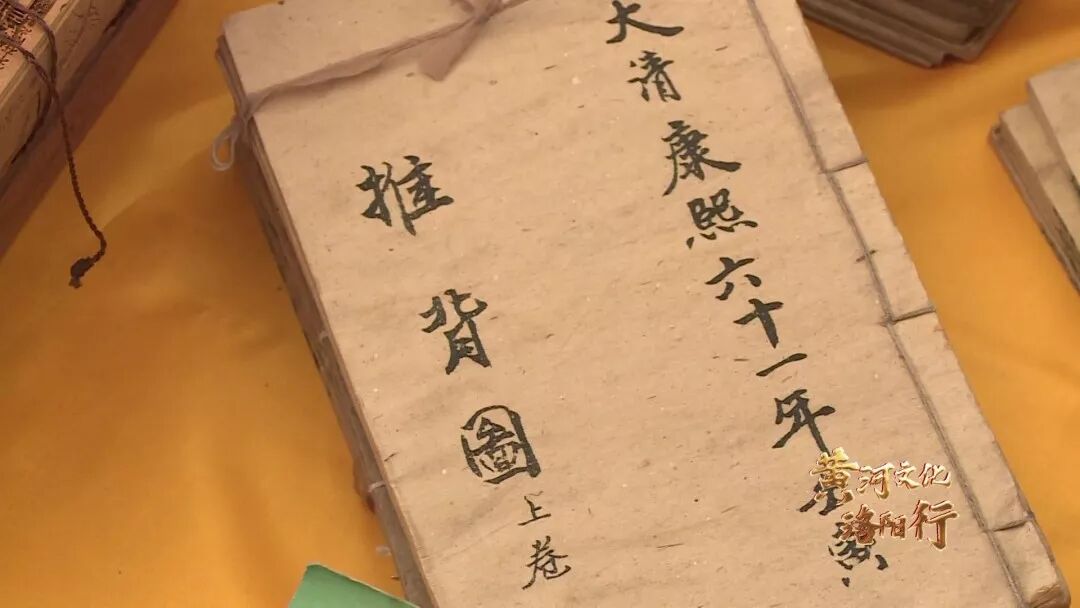 大清康熙六十一年壬寅
推背图上卷
黄河文化
洛阳行